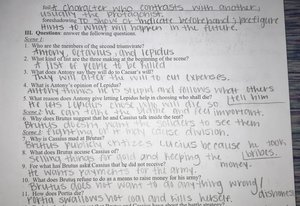 foil: A character who contrasts with another,
usually the protagonist.
foreshadowing: To show or indicate beforehand; prefigure
hints to what will happen in the future.
III. Questions: answer the following question.
Scene 1:
1. Who are the members of the second triumvirate?
Antony, Octavius, and Lepidus
2. What kind of list are the three making at the beginning of the scene?
A list of people to be killed
3. What does Antony say they will do to Caesar's will?
They will alter the will to cut expenses.
4. What is Antony's opinion of Lepidus?
Antony thinks he is stupid and follows what others tell him
5. What reason does Antony give letting Lepidus help in choosing who shall die?
He lets Lepidus chose who will die so
he can take the blame and feel important.
6. Why does Brutus suggest that he and Cassius talk inside the tent?
Brutus doesn't want the soldiers to see them
fighting or it may cause division.
7. Why is Cassius mad at Brutus?
Brutus publicly critizes Lucius because he took bribes.
8. What does Brutus accuse Cassius of?
Selling things for gold and keeping the money.
9. For what had Brutus asked Cassius that he did not receive?
He wants payments for the army.
10. What does Brutus refuse to do as a means to raise money for his army?
Brutus does not want to do anything wrong/dishonest
11. How does Portia die?
Portia swallows hot coal and kills herself.